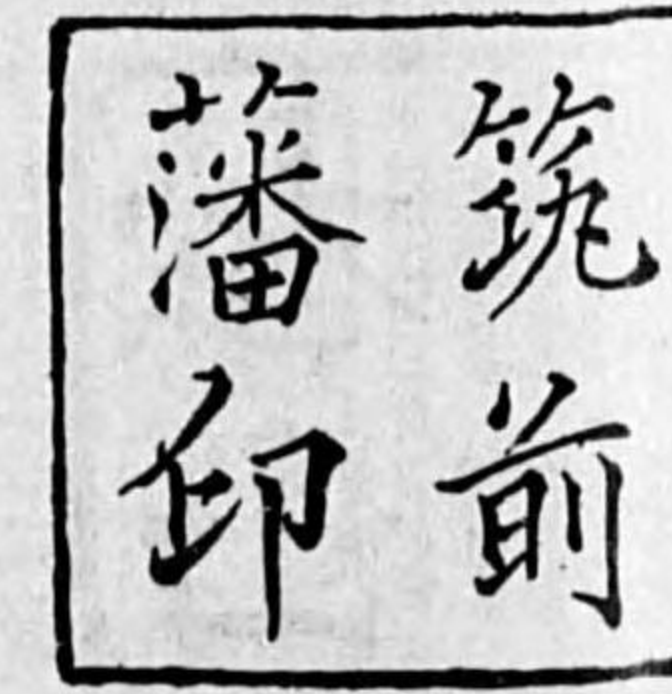 筑前
藩印